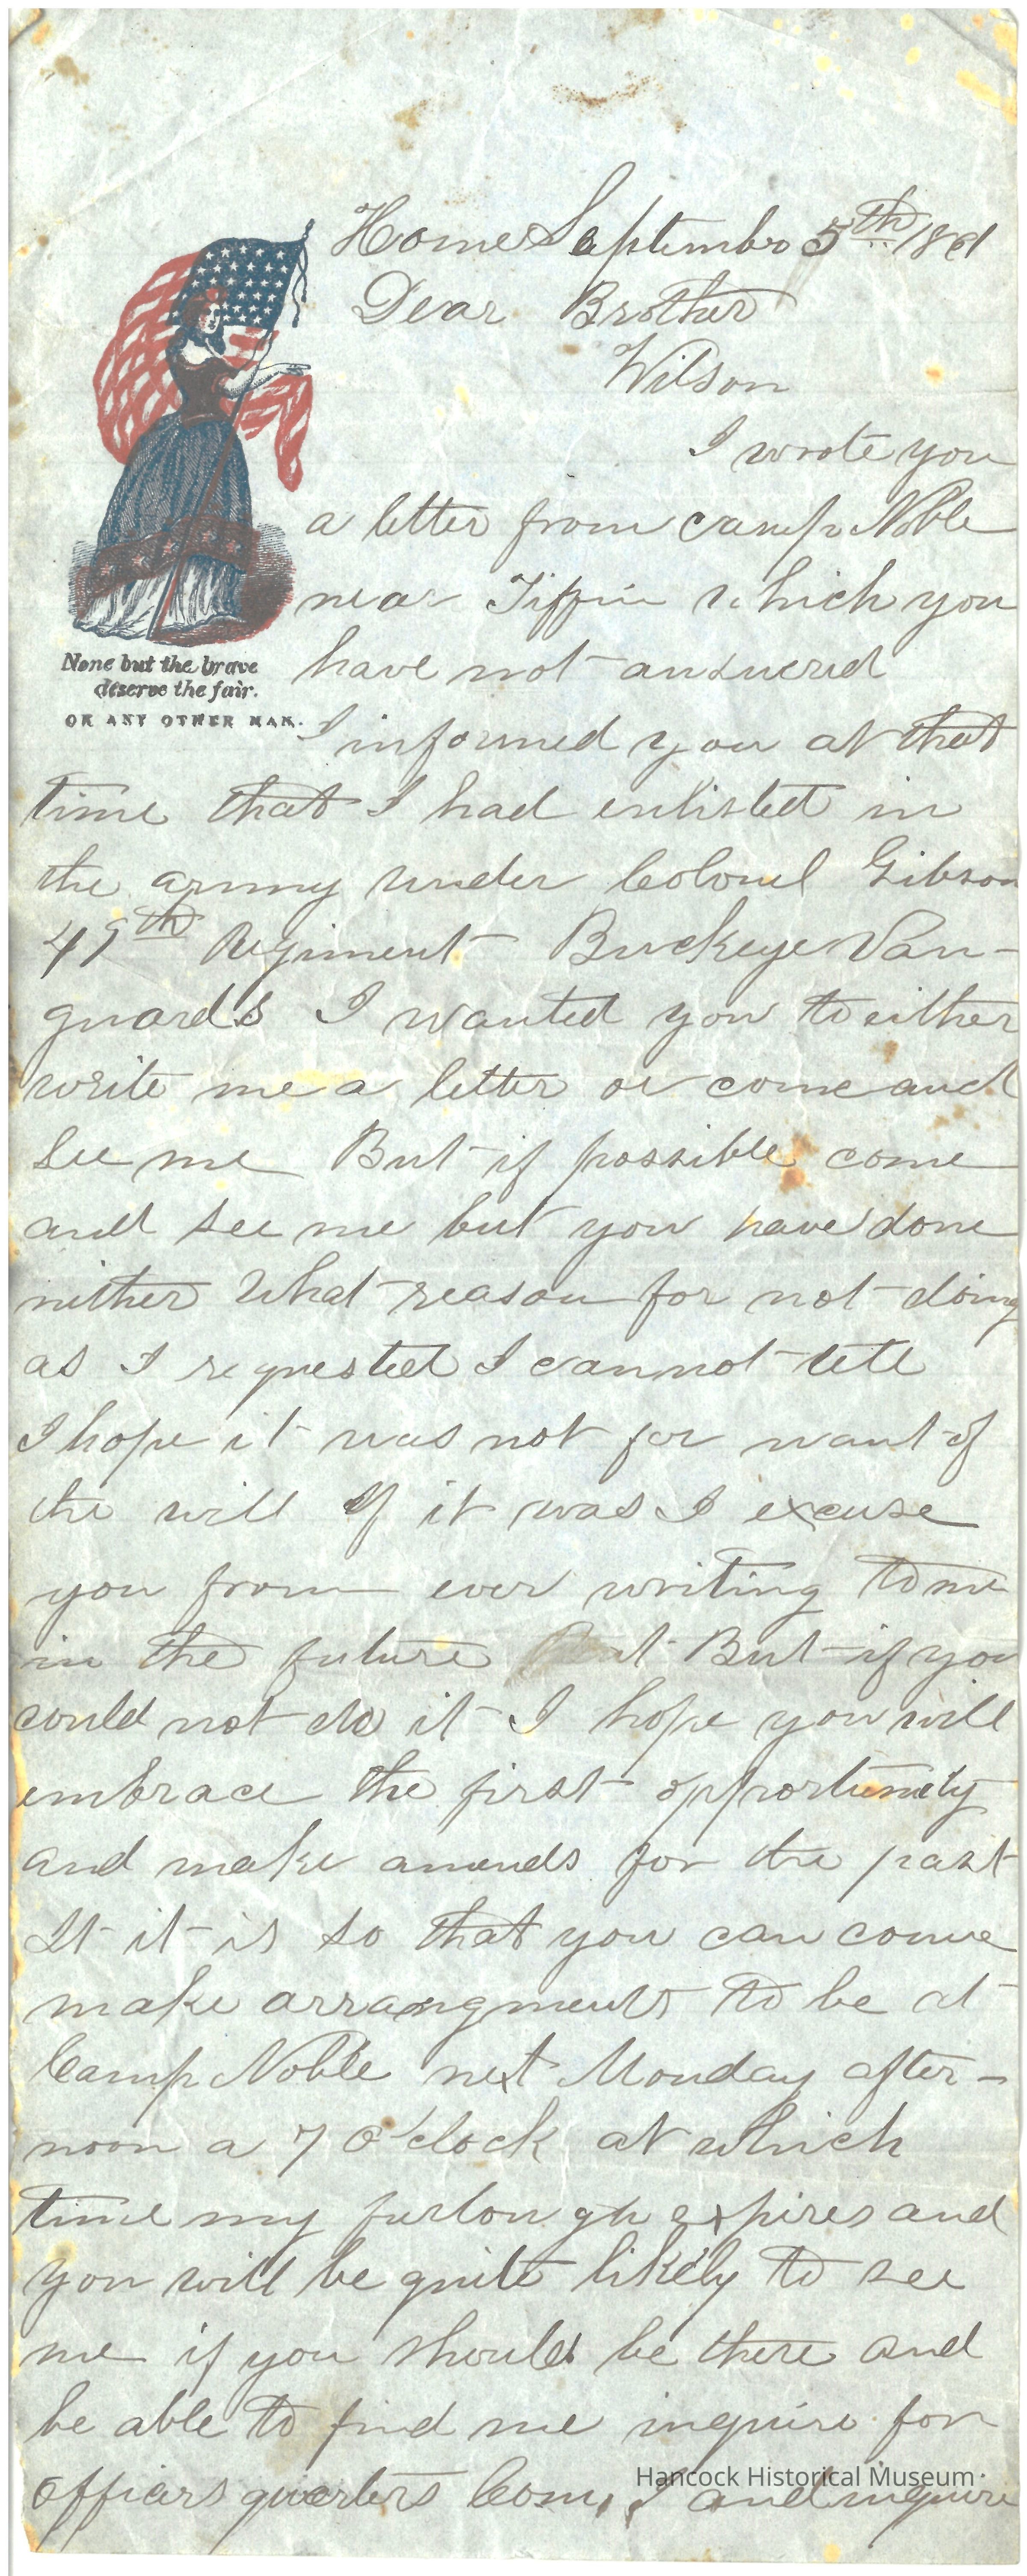 Home September 5th 1861
Dear Brother
Wilson
I wrote you
a letter from camp Noble
near Tiffin which you
have not answered
None but the brave
deserve the fair.
OR ANY OTHER MAN.
I informed you at that
time that I had enlisted in
the army under Colonel Gibson
49th Regiment Buckeye Van-
guards I wanted you to either
write me a letter or come and
see me But if possible come
and see me but you have done
nither What reason for not doing
as I requested I cannot tell
I hope it was not for want of
the will If it was I excuse
you from ever writing to me
in the future But if you
could not do it I hope you will
embrace the first opportunity
and make amends for the past
It it is so that you can come
make arrangments to be at
Camp Noble next Monday after-
noon a 7 O'clock at which
time my furlough expires and
you will be quite likely to see
me if you should be there and
be able to find me inquire for
officers quarters Com, I and inquire
Hancock Historical Museum